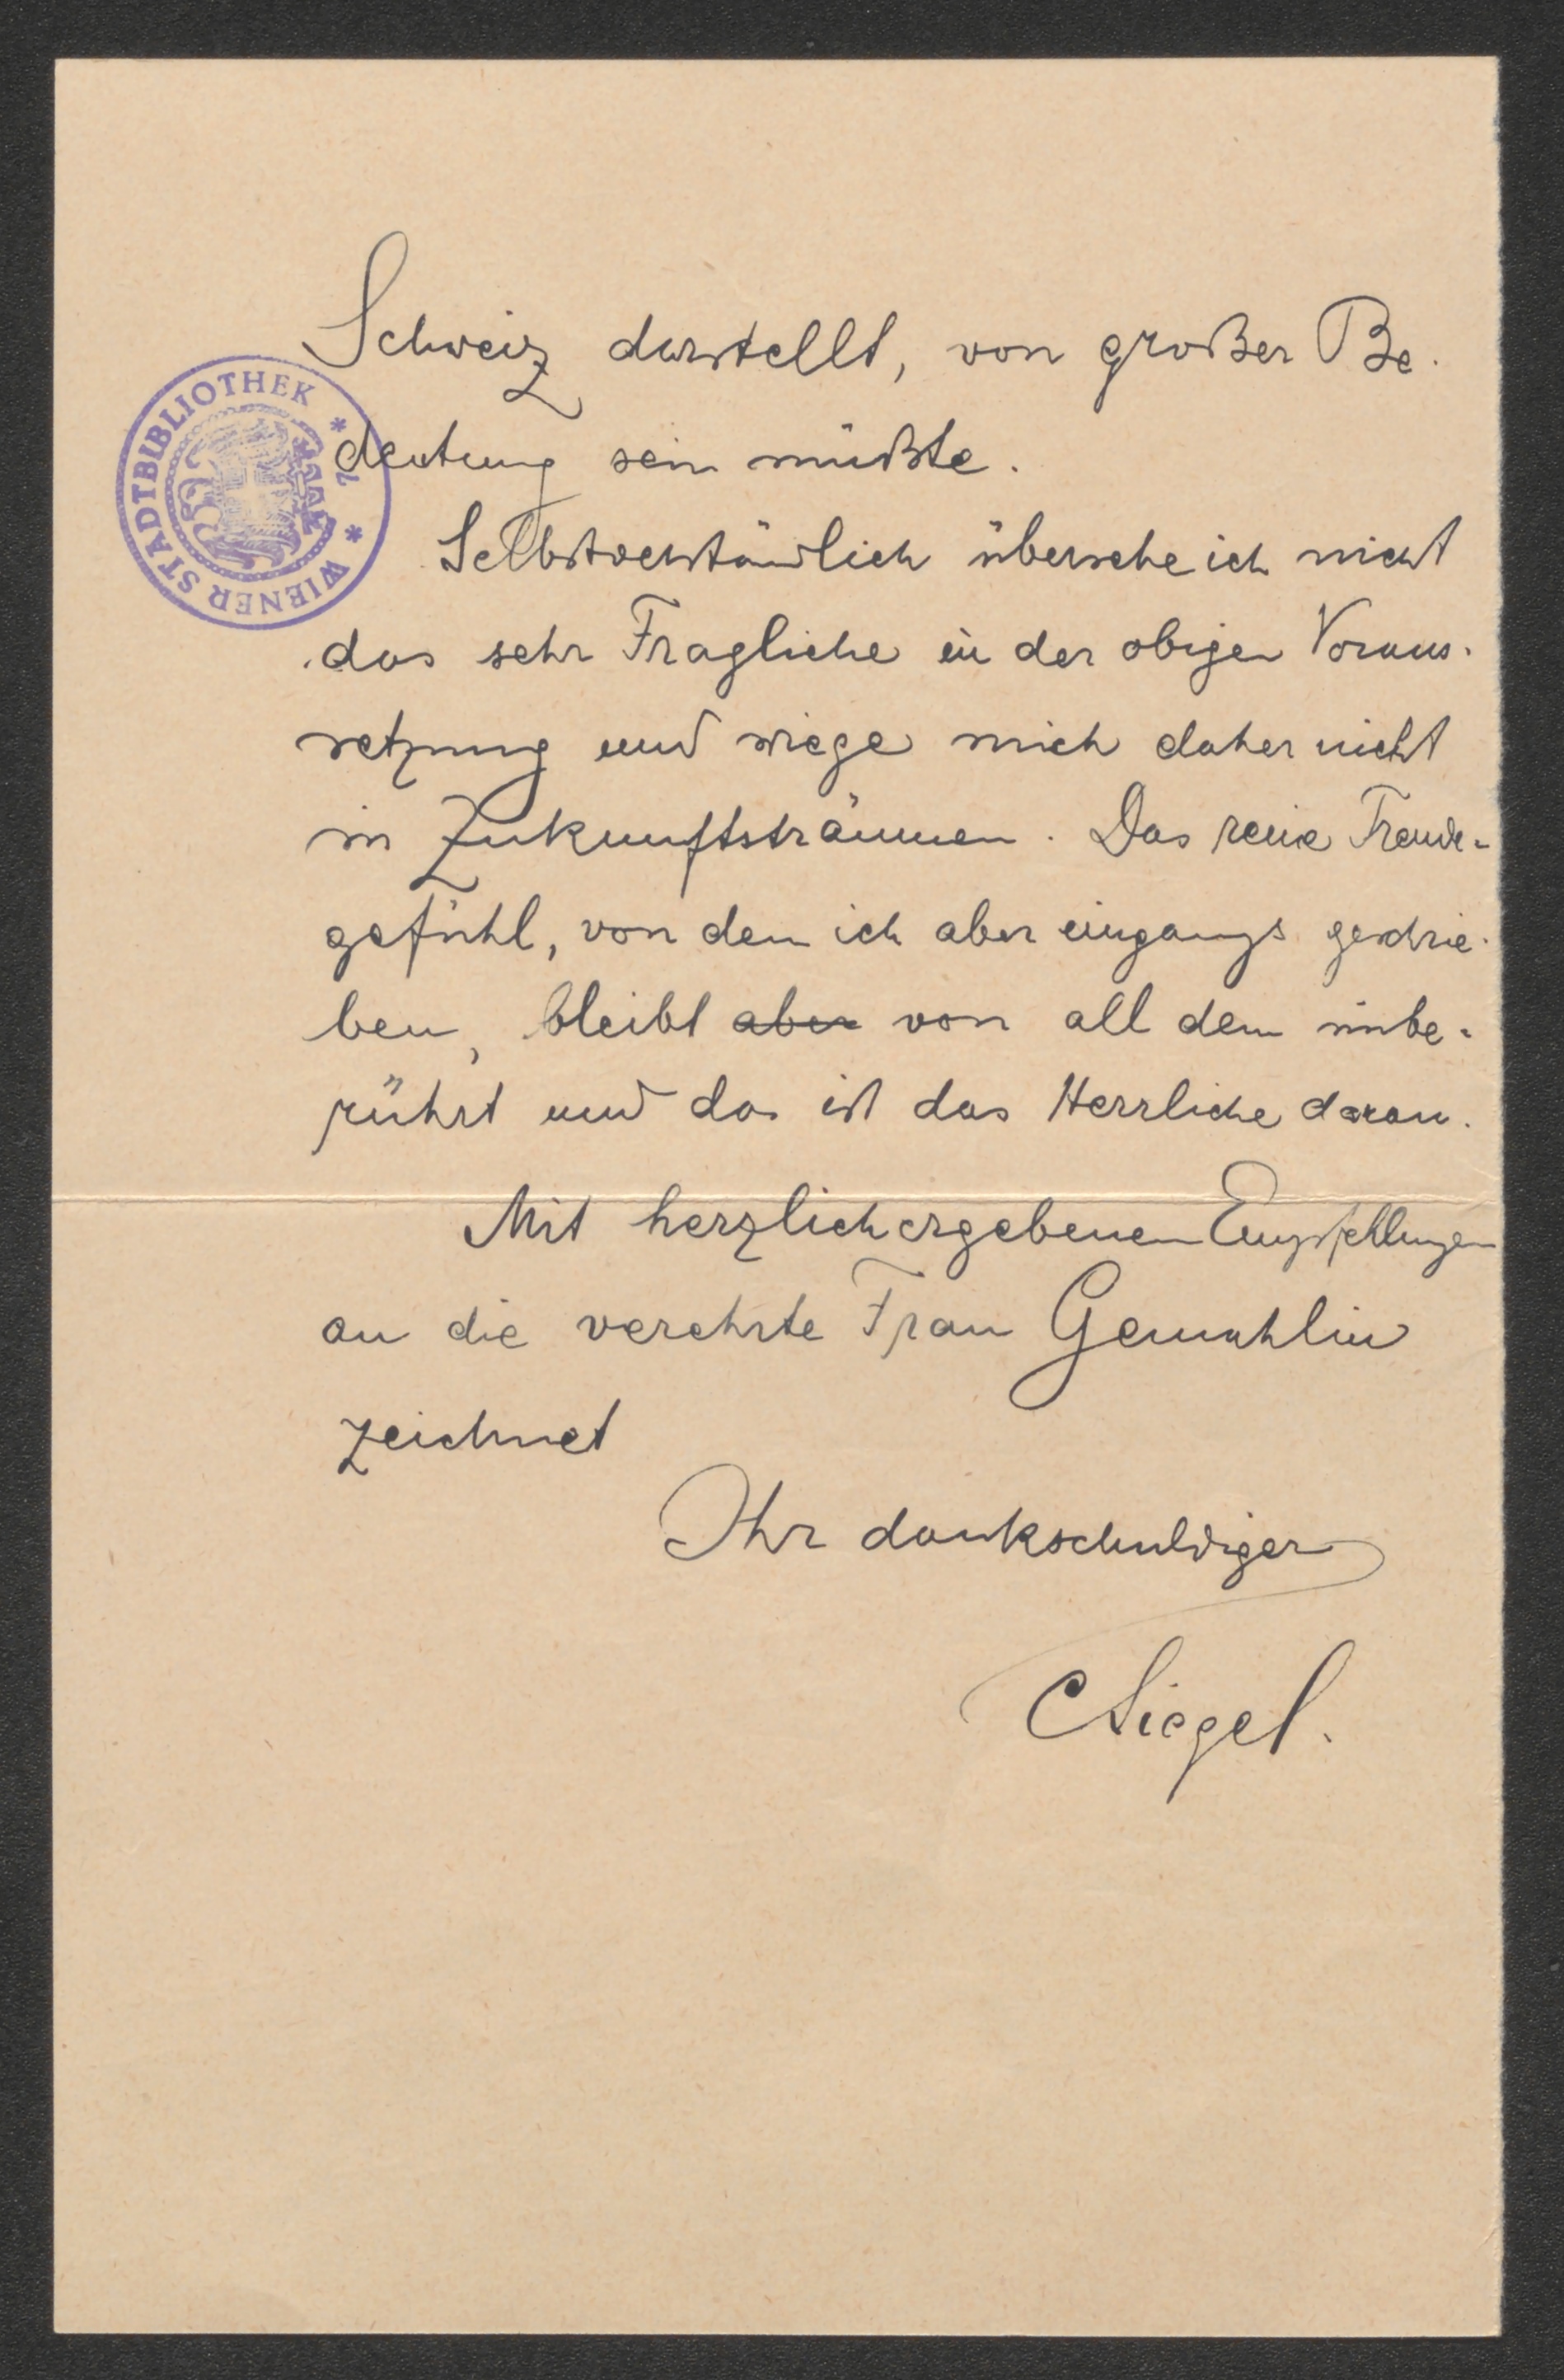 Schweiz darstellt, von großer Be-
deutung sein müßte.
Selbstverständlich übersehe ich nicht
das sehr Fragliche in der obigen Voraus-
setzung und wiege mich daher nicht
in Zukunftsträumen. Das reine Freude-
gefühl, von dem ich aber eingangs geschrie-
ben, bleibt aber von all dem unbe-
rührt und das ist das Herrliche daran.
Mit herzlich ergebenen Empfehlungen
an die verehrte Frau Gemahlin
zeichnet
Ihr dankschuldiger
CSiegel.
WIENER STADTBIBLIOTHEK